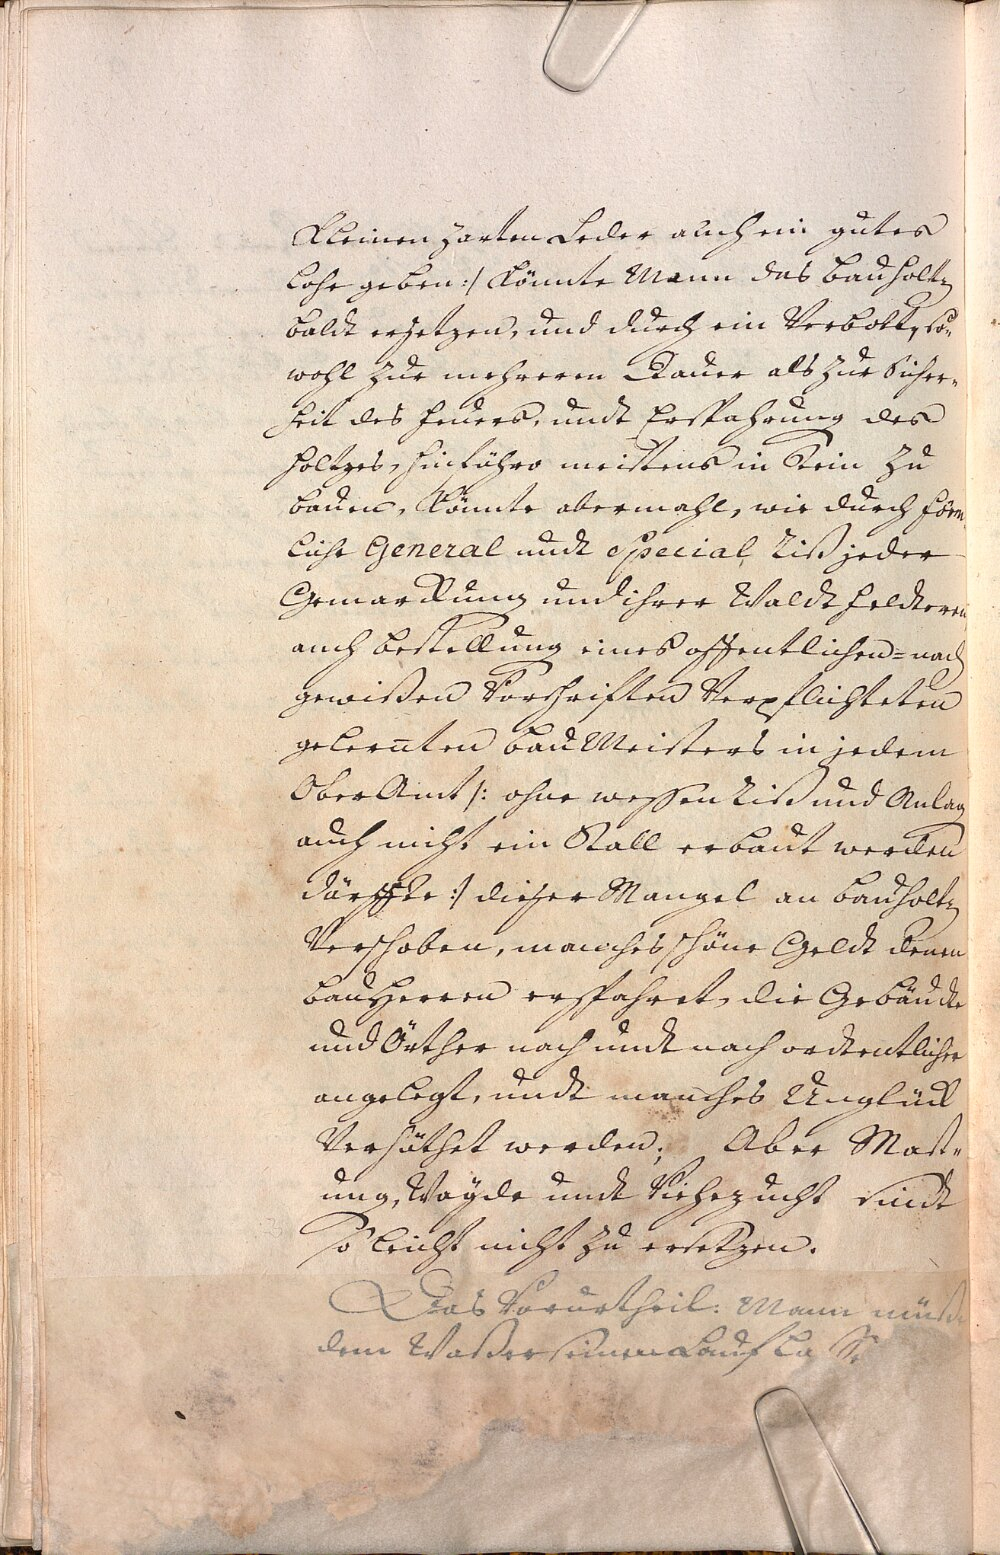 kleinen zarten Leder auch ein gutes
Lohe geben :/ könnte Mann das bauholtz
baldt ersetzen, und durch ein Verbott, so=
wohl zur mehreren Dauer als zur Sicher=
heit des feuers, undt Erspahrung des
holtzes, hinführo meistens in Stein zu
bauen, könnte abermahl, wie durch förm
liche General undt Special Riß jeder
Gemarckung und ihrer Waldt feldteren
auch bestellung eines offentlichen= nach
gewißen Vorschriften Verpflichteten
gelernten bau Meisters in jedem
Ober Amt /: ohne wessen Riß und Anlag
auch nicht ein Stall erbaut werden
därffte :/ dießer Mangel an bauholtz
Verschoben, manches schöne Geldt denen
bau Herren erspahret, die Gebäudte
und Örther nach undt nach ordtentlicher
angelegt, undt manches Unglück
Verhüthet werden; Aber Mast=
ung, Wayde undt Viehezucht sindt
so leicht nicht zu ersetzen.
Das Vorurtheil: Mann müße
dem Waßer seinen Lauf laße